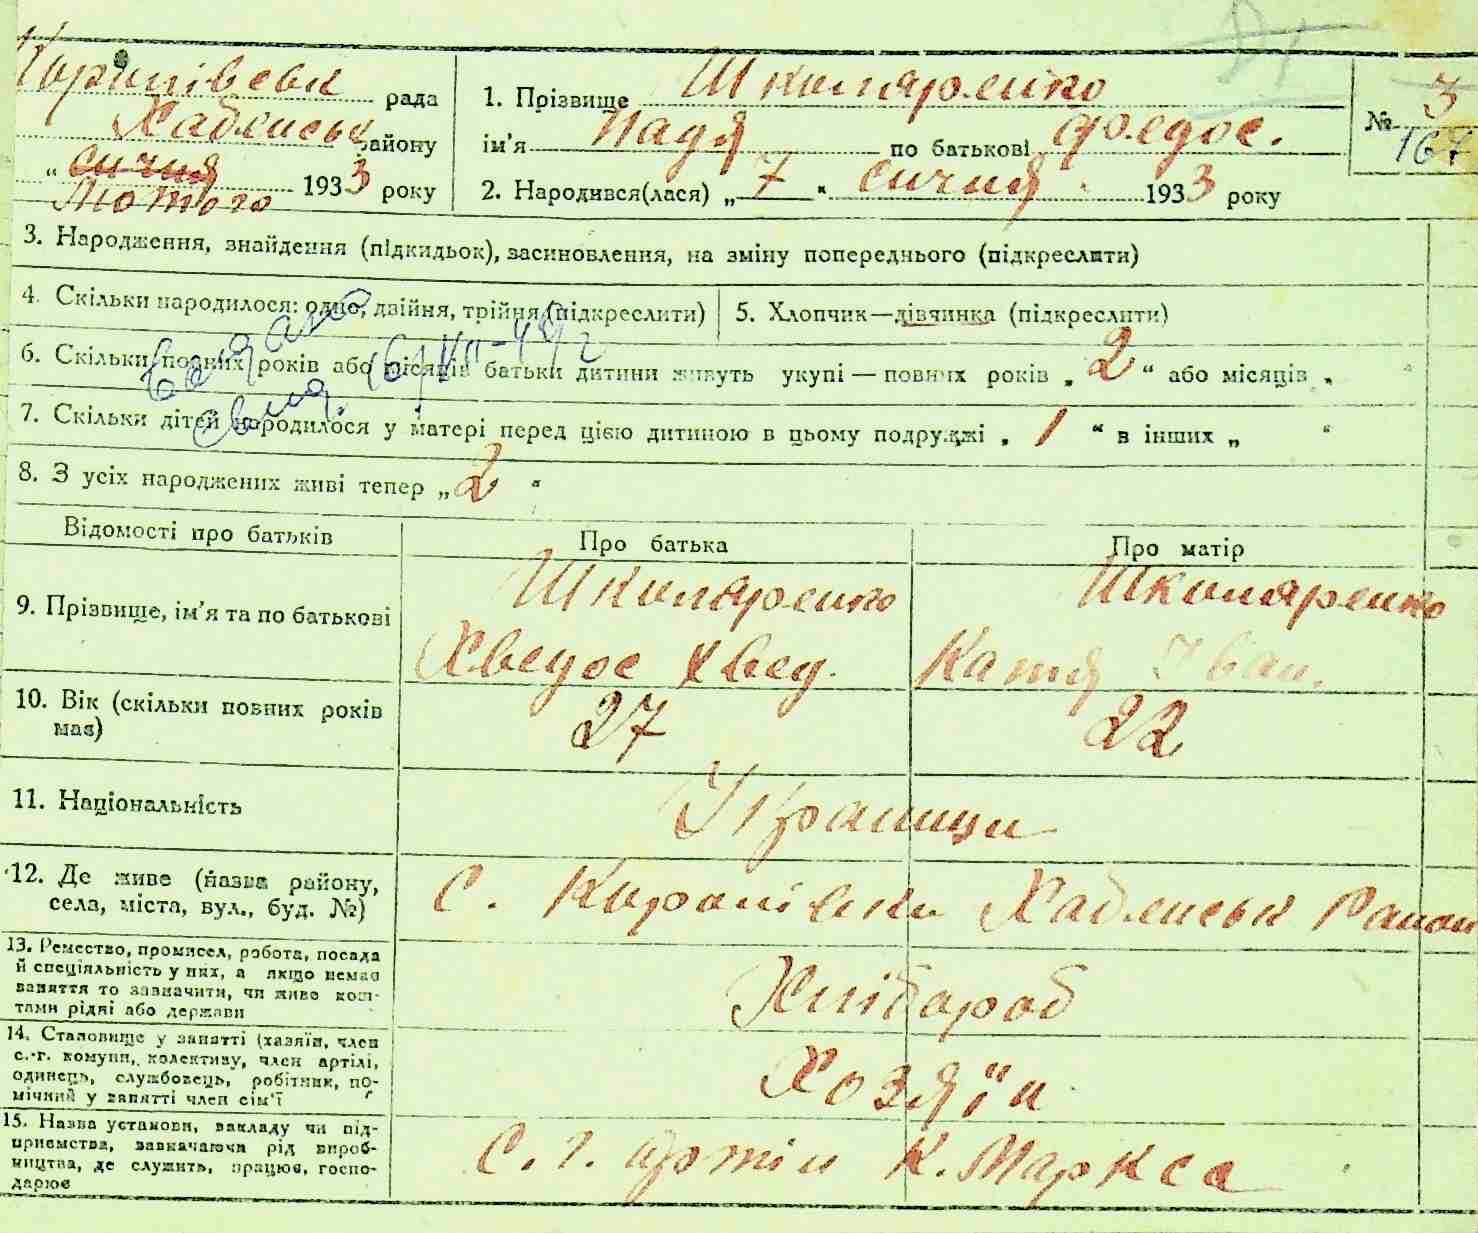 рада
Хабленськ району
" сичня 1933 року
Лютого
1. Прізвище Школяренко
ім'я Надя по батькові Федос.
2. Народився(лася) „ 7 " сичня 1933 року
№ 3
167
3. Народження, знайдення (підкидьок), засиновлення, на зміну попереднього (підкреслити)
4. Скільки народилося: одно, двійня, трійня (підкреслити)
5. Хлопчик—дівчинка (підкреслити)
6. Скільки повних років або місяців батьки дитини живуть укупі — повних років „ 2 " або місяців „ "
7. Скільки дітей народилося у матері перед цією дитиною в цьому подружжі „ 1 " в інших „ "
8. З усіх народжених живі тепер „ 2 "
Відомості про батьків
Про батька
Про матір
9. Прізвище, ім'я та по батькові
Школяренко
Хведос Хвед.
Школяренко
Катя Іван.
10. Вік (скільки повних років має)
27
22
11. Національність
Українци
12. Де живе (назва району,
села, міста, вул., буд. №)
С. Хабленськ Район
13. Ремество, промисел, робота, посада
й спеціяльність у них, а якщо немає
заняття то зазначити, чи живе кош-
тами рідні або держави
Хлібороб
14. Становище у занятті (хазяїн, член
с.-г. комуни, колективу, член артілі,
одинець, службовець, робітник, по-
мічний у занятті член сім'ї
Хозяїн
15. Назва установи, закладу чи під-
приємства, зазначаючи рід вироб-
ництва, де служить, працює, госпо-
дарює
С. г. артіл К. Маркса